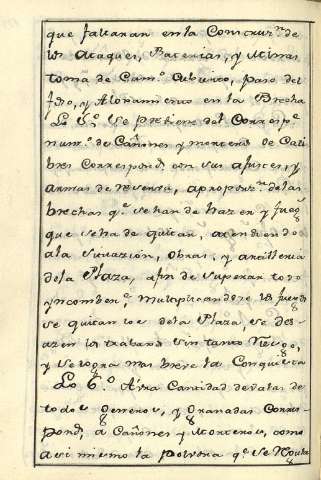 que faltaran en la Construz.n de
los Ataques, Baterias, y Minas
toma de Cam.o Cubierto, paso del
foso, y Alojamiento en la Brecha
Lo 5.o Se previene del Corresp.e
num.o de Cañones y morteros de Cali
bres Correspond.s con sus afustes, y
armas de a proporz.n de las
brechas q.e se han de hazer y fueg.s
que se ha de quitar, atendiendo
a la Situazion, obras, y artilleria
de la Plaza, a fin de superar todo
yncombeni.e multiplicandose los fuegos
se quitan los de la Plaza, se des
azen los trabaxos sin tanto Riesgo,
y se logra mas breve la Conquista
Lo 6.o Aira Cantidad de balas de
todos Generos, y Granadas Corres
pond.s a Cañones y Morteros, como
asi mismo la polvora q.e se